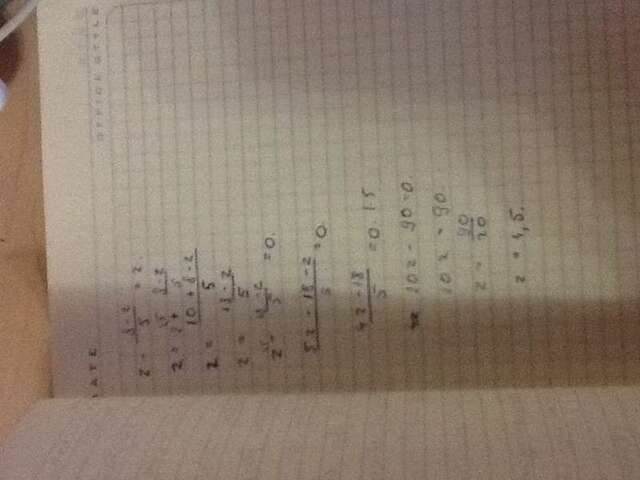 DATE
OFFICE STYLE
z - 8-z/5 = 2
z = 2 + 8-z/5
z = 10 + 8 - z/5
z = 18 - z/5
z - 18-z/5 = 0.
5z - 18 - z/5 = 0
4z - 18/5 = 0 | · 5
20z - 90 = 0.
20z = 90
z = 90/20
z = 4,5.